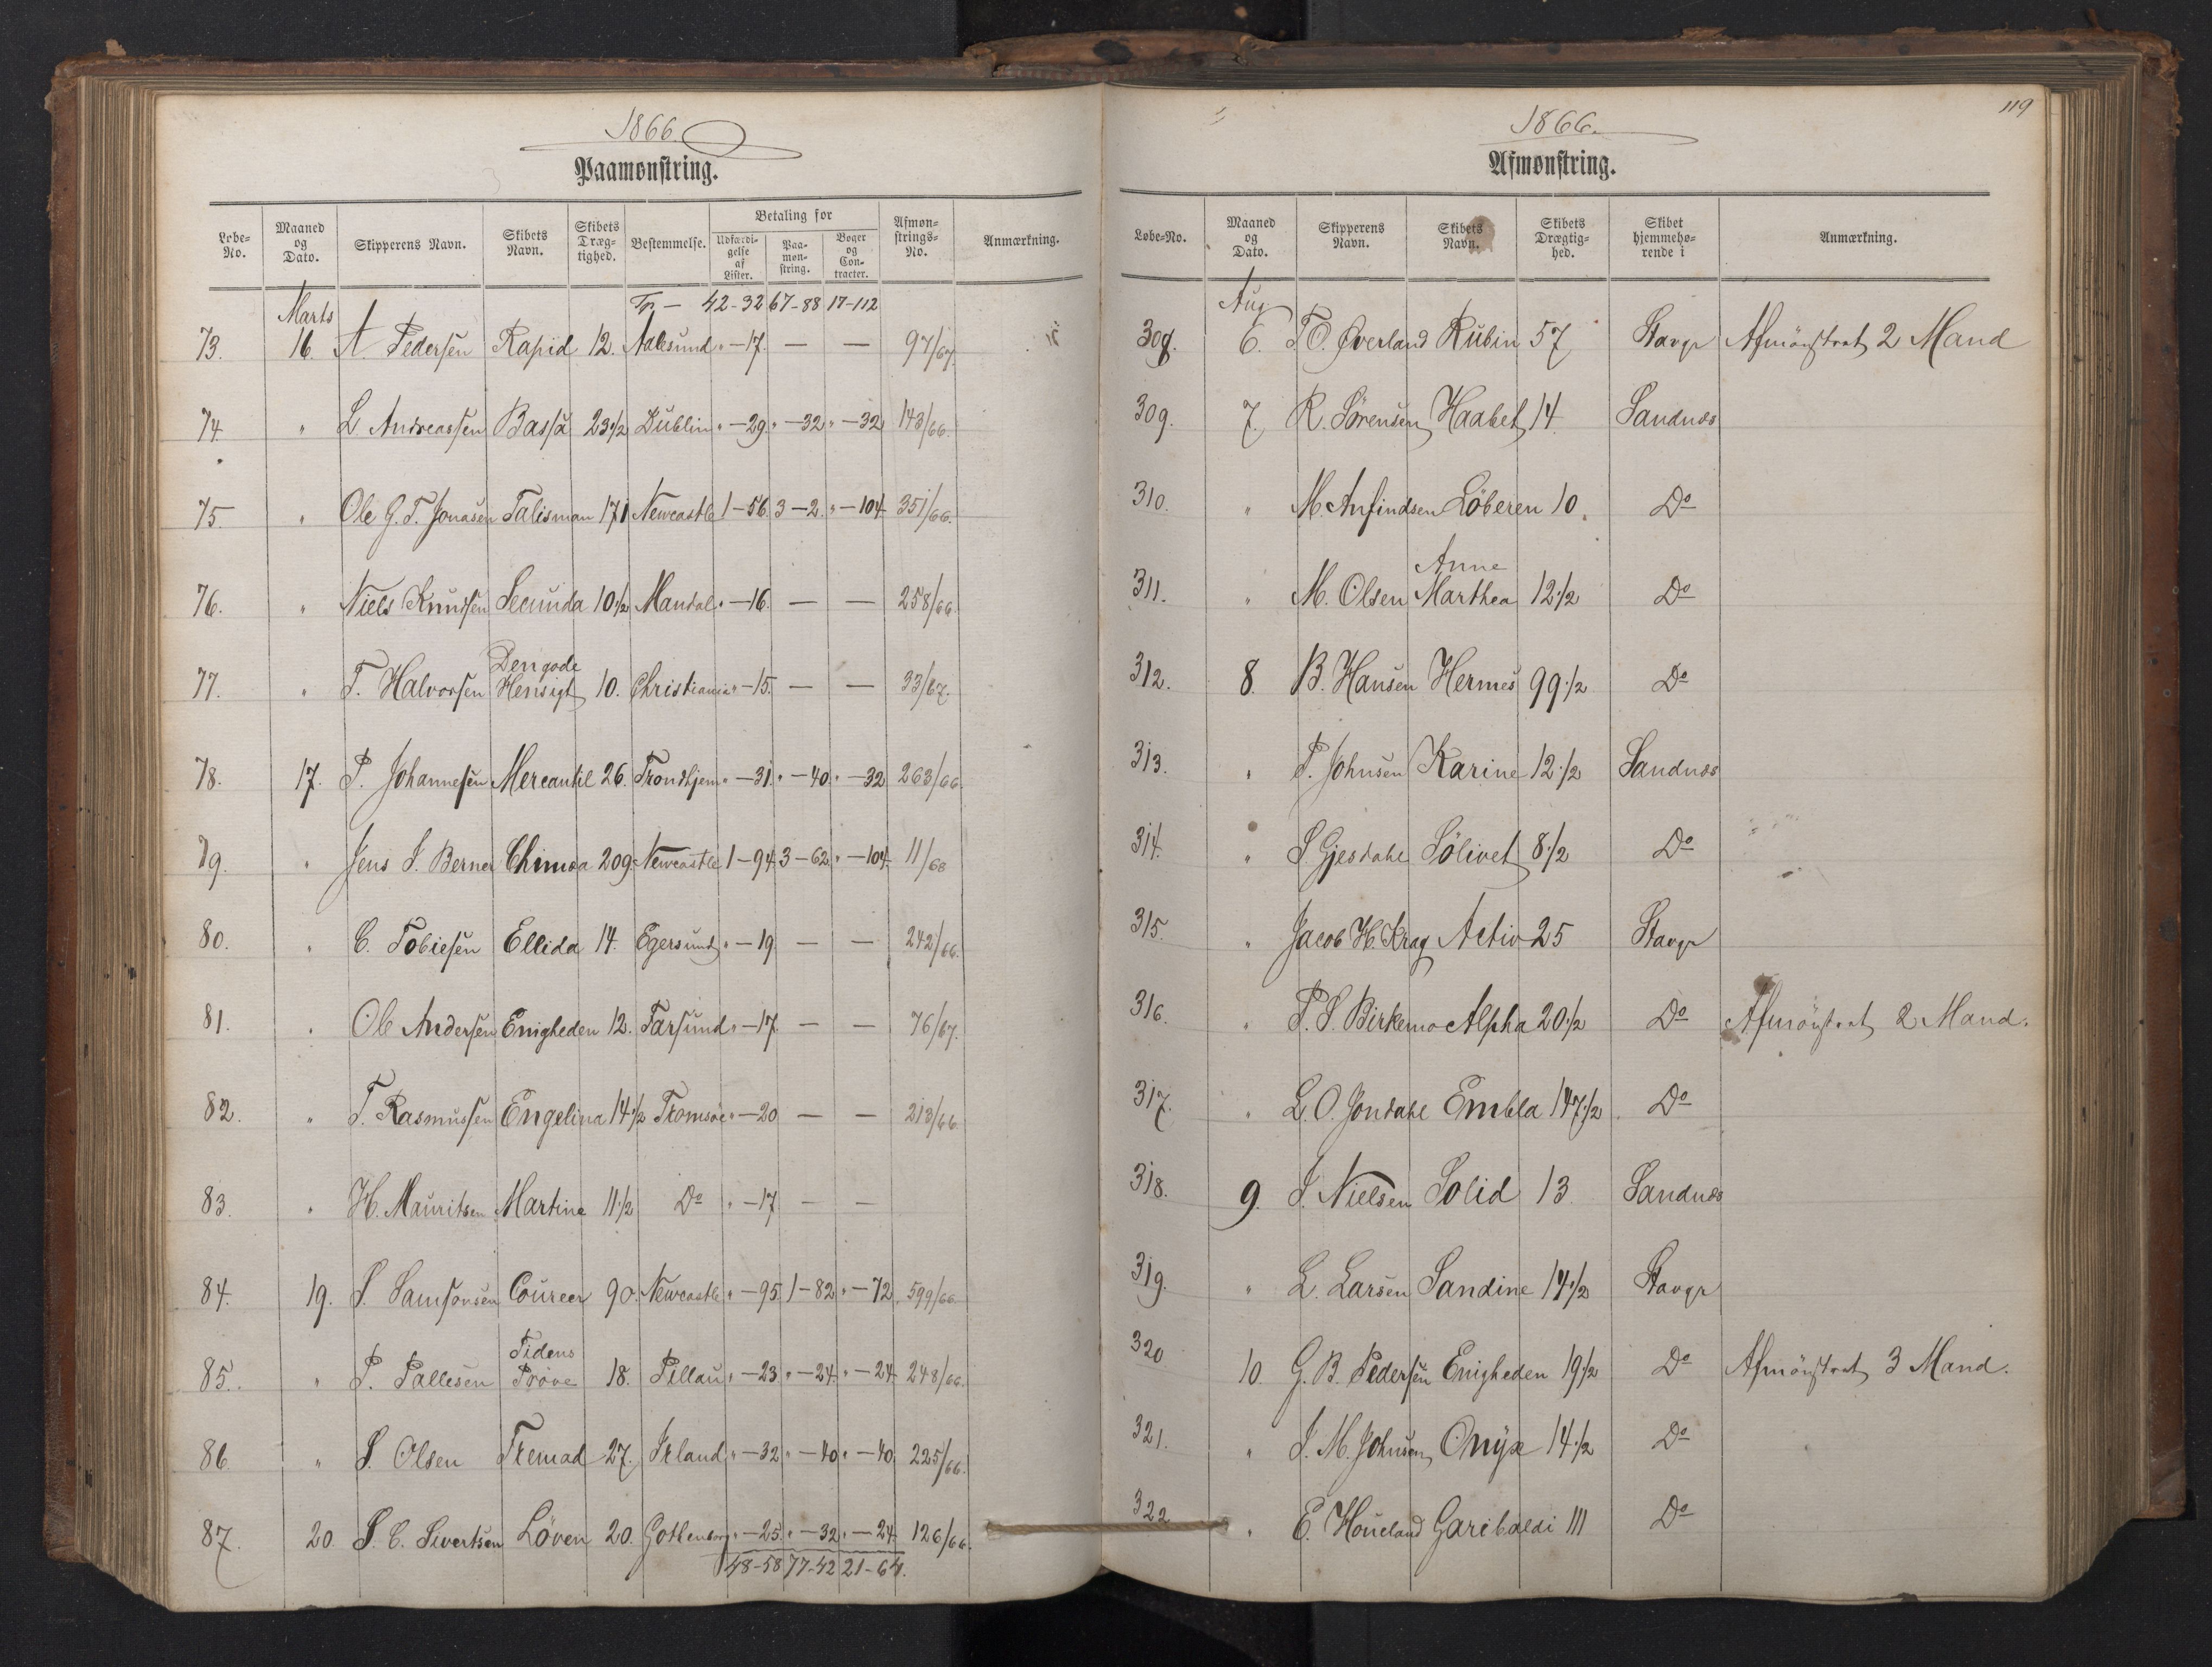 1866.
Paamønstring.
Løbe-No. Maaned og Dato. Skipperens Navn. Skibets Navn. Skibets Drægtighed. Bestemmelse. Betaling for Udfærdigelse af Lister. Paamønstring. Bøger og Contracter. Afmønstrings-No. Anmærkning.
Marts Tr. — 42-32 67-88 17-112
73. 16. A. Pedersen Rapid 12. Aalesund " — 17. — — 97/67.
74. " L. Andreassen Bassa 23 1/2 Dublin " — 29. " — 32 " — 32 143/66.
75 " Ole G. T. Jonasen Talisman 171 Newcastle 1 — 56. 3 — 2. " — 104 351/66.
76. " Niels Knudsen Secunda 10 1/2 Mandal " — 16. — — 258/66.
77. " T. Halvorsen Den gode Hensigt 10. Christiania " — 15. — — 33/67.
78. 17. P. Johannesen Mercantil 26. Trondhjem " — 31. " — 40. " — 32 263/66.
79. " Jens J. Berner Chimæa 209. Newcastle 1 — 94. 3 — 62. " — 104. 11/68
80. " C. Tobiesen Ellida 14. Egersund " — 19 — — 242/66.
81. " Ole Andersen Enigheden 12. Farsund " — 17. — — 76/67.
82. " T. Rasmussen Engelina 14 1/2 Tromsøe " — 20 — — 213/66
83. " H. Mauritsen Martine 11 1/2 Do " — 17 — —
84. 19. S. Samsonsen Coureer 90. Newcastle " — 95 1 — 82 " — 72 599/66
85. " P. Pallesen Tidens Prøve 18. Pillau " — 23 " — 24. " — 24 248/66.
86 " S. Olsen Tremad 27. Irland " — 32 " — 40 " — 40. 225/66.
87. 20. S. C. Sivertsen Løven 20. Gothenborg " — 25. " — 32 " — 24. 126/66.
48-58 77-42 21-64.
119
1866.
Afmønstring.
Løbe-No. Maaned og Dato. Skipperens Navn. Skibets Navn. Skibets Drægtighed. Skibet hjemmehørende i Anmærkning.
Aug
308. 6. T. O. Øverland Rubin 57 Stavgr Afmönstret 2 Mand
309. 7. R. Sörensen Haabet 14. Sandnæs
310. " M. Anfindsen Löberen 10. Do
311. " M. Olsen Anne Marthea 12 1/2 Do
312. 8. B. Hansen Hermes 99 1/2 Do
313. " P. Johnsen Karine 12 1/2 Sandnæs
314. " S. Gjesdahl Sölivet 8 1/2 Do
315. " Jacob H. Krag Activ 25 Stavgr
316. " P. S. Birkemo Alpha 20 1/2 Do Afmönstret 2 Mand.
317. " L. O. Jondahl Embla 147 1/2 Do
318. 9. J. Nielsen Solid 13 Sandnæs
319. " L. Larsen Sandine 14 1/2 Stavgr
320 10. G. B. Pedersen Enigheden 19 1/2 Do Afmönstret 3 Mand.
321. " J. M. Johnsen Onyx 14 1/2 Do
322 " E. Houeland Garibaldi 111 Do